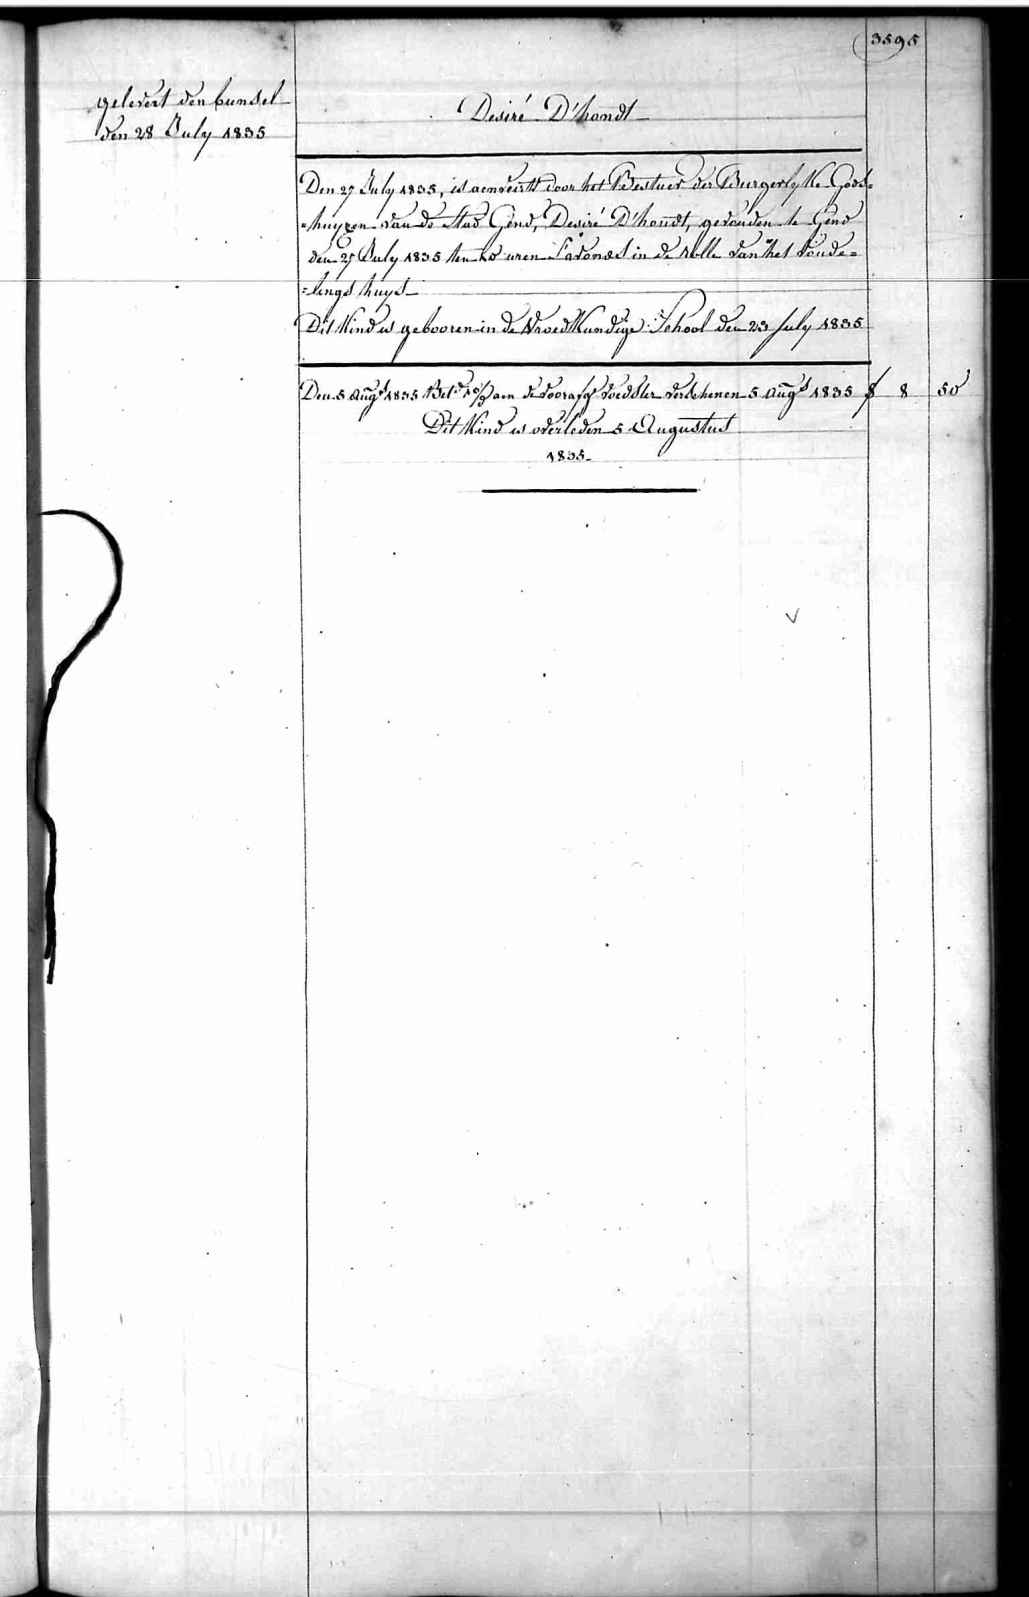 3595
gelevert den bunsel
den 28 July 1835
Desiré D'hondt
Den 27 July 1835, is aenveirdt door het Bestuer der Burgerlyke Gods=
=huyzen van de stad Gend, Desiré D'hondt, gevonden te Gend
den 27 July 1835 ten 10 uren s'avonds in de rolle van het vonde=
=lings huys
Dit kind is gebooren in de Vroedkundige School den 23 July 1835
Den 5 Augs 1835 aen de voedster verschenen 5 Augs 1835 f 8 50
Dit kind is overleden 5 Augustus
1835